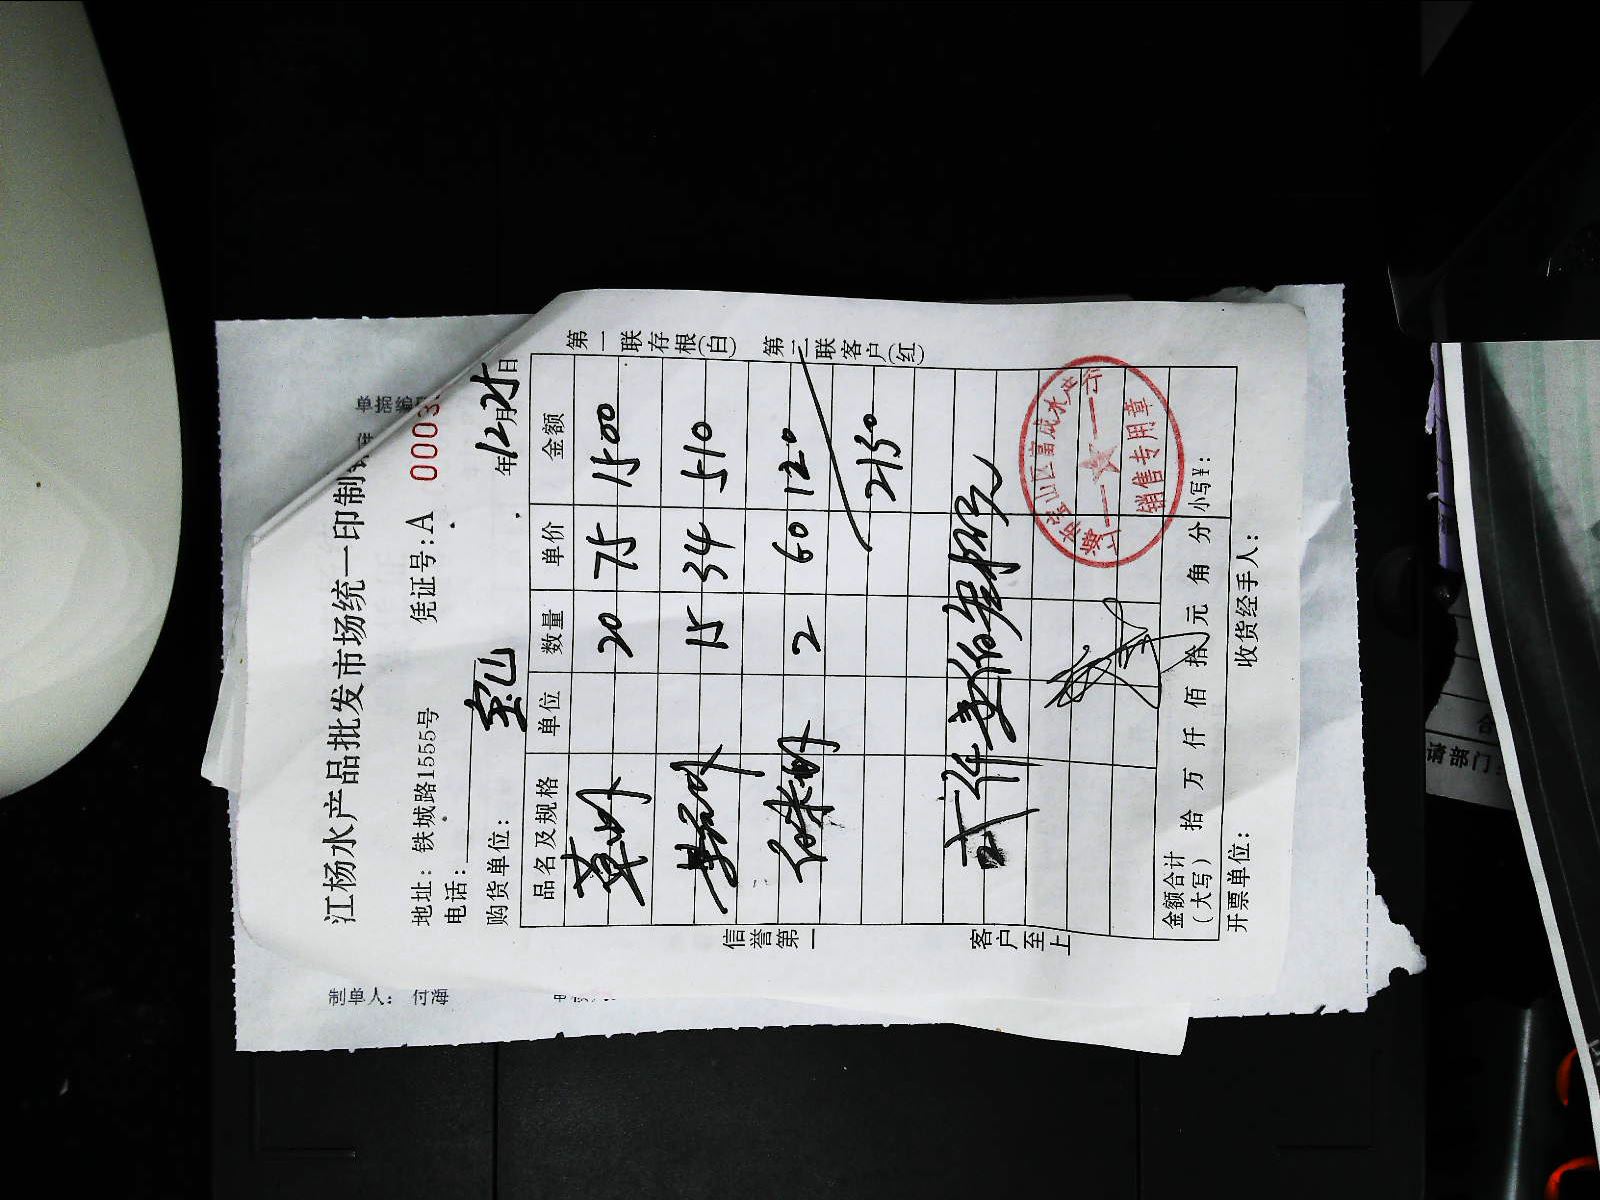 单据编
制单人:
江杨水产品批发市场统一印制
地址: 铁城路1555号 凭证号: A 0003
电话:
购货单位:
年12月25日
品名及规格 单位 数量 单价 金额
草虾 20 75 1500
15 34 510
2 60 120
2130
金额合计(大写) 拾 万 仟 佰 拾 元 角 分 小写¥:
开票单位: 收货经手人:
信誉第一
客户至上
第一联存根(白)
第二联客户(红)
上海市宝山区富成水产
销售专用章
请部门: